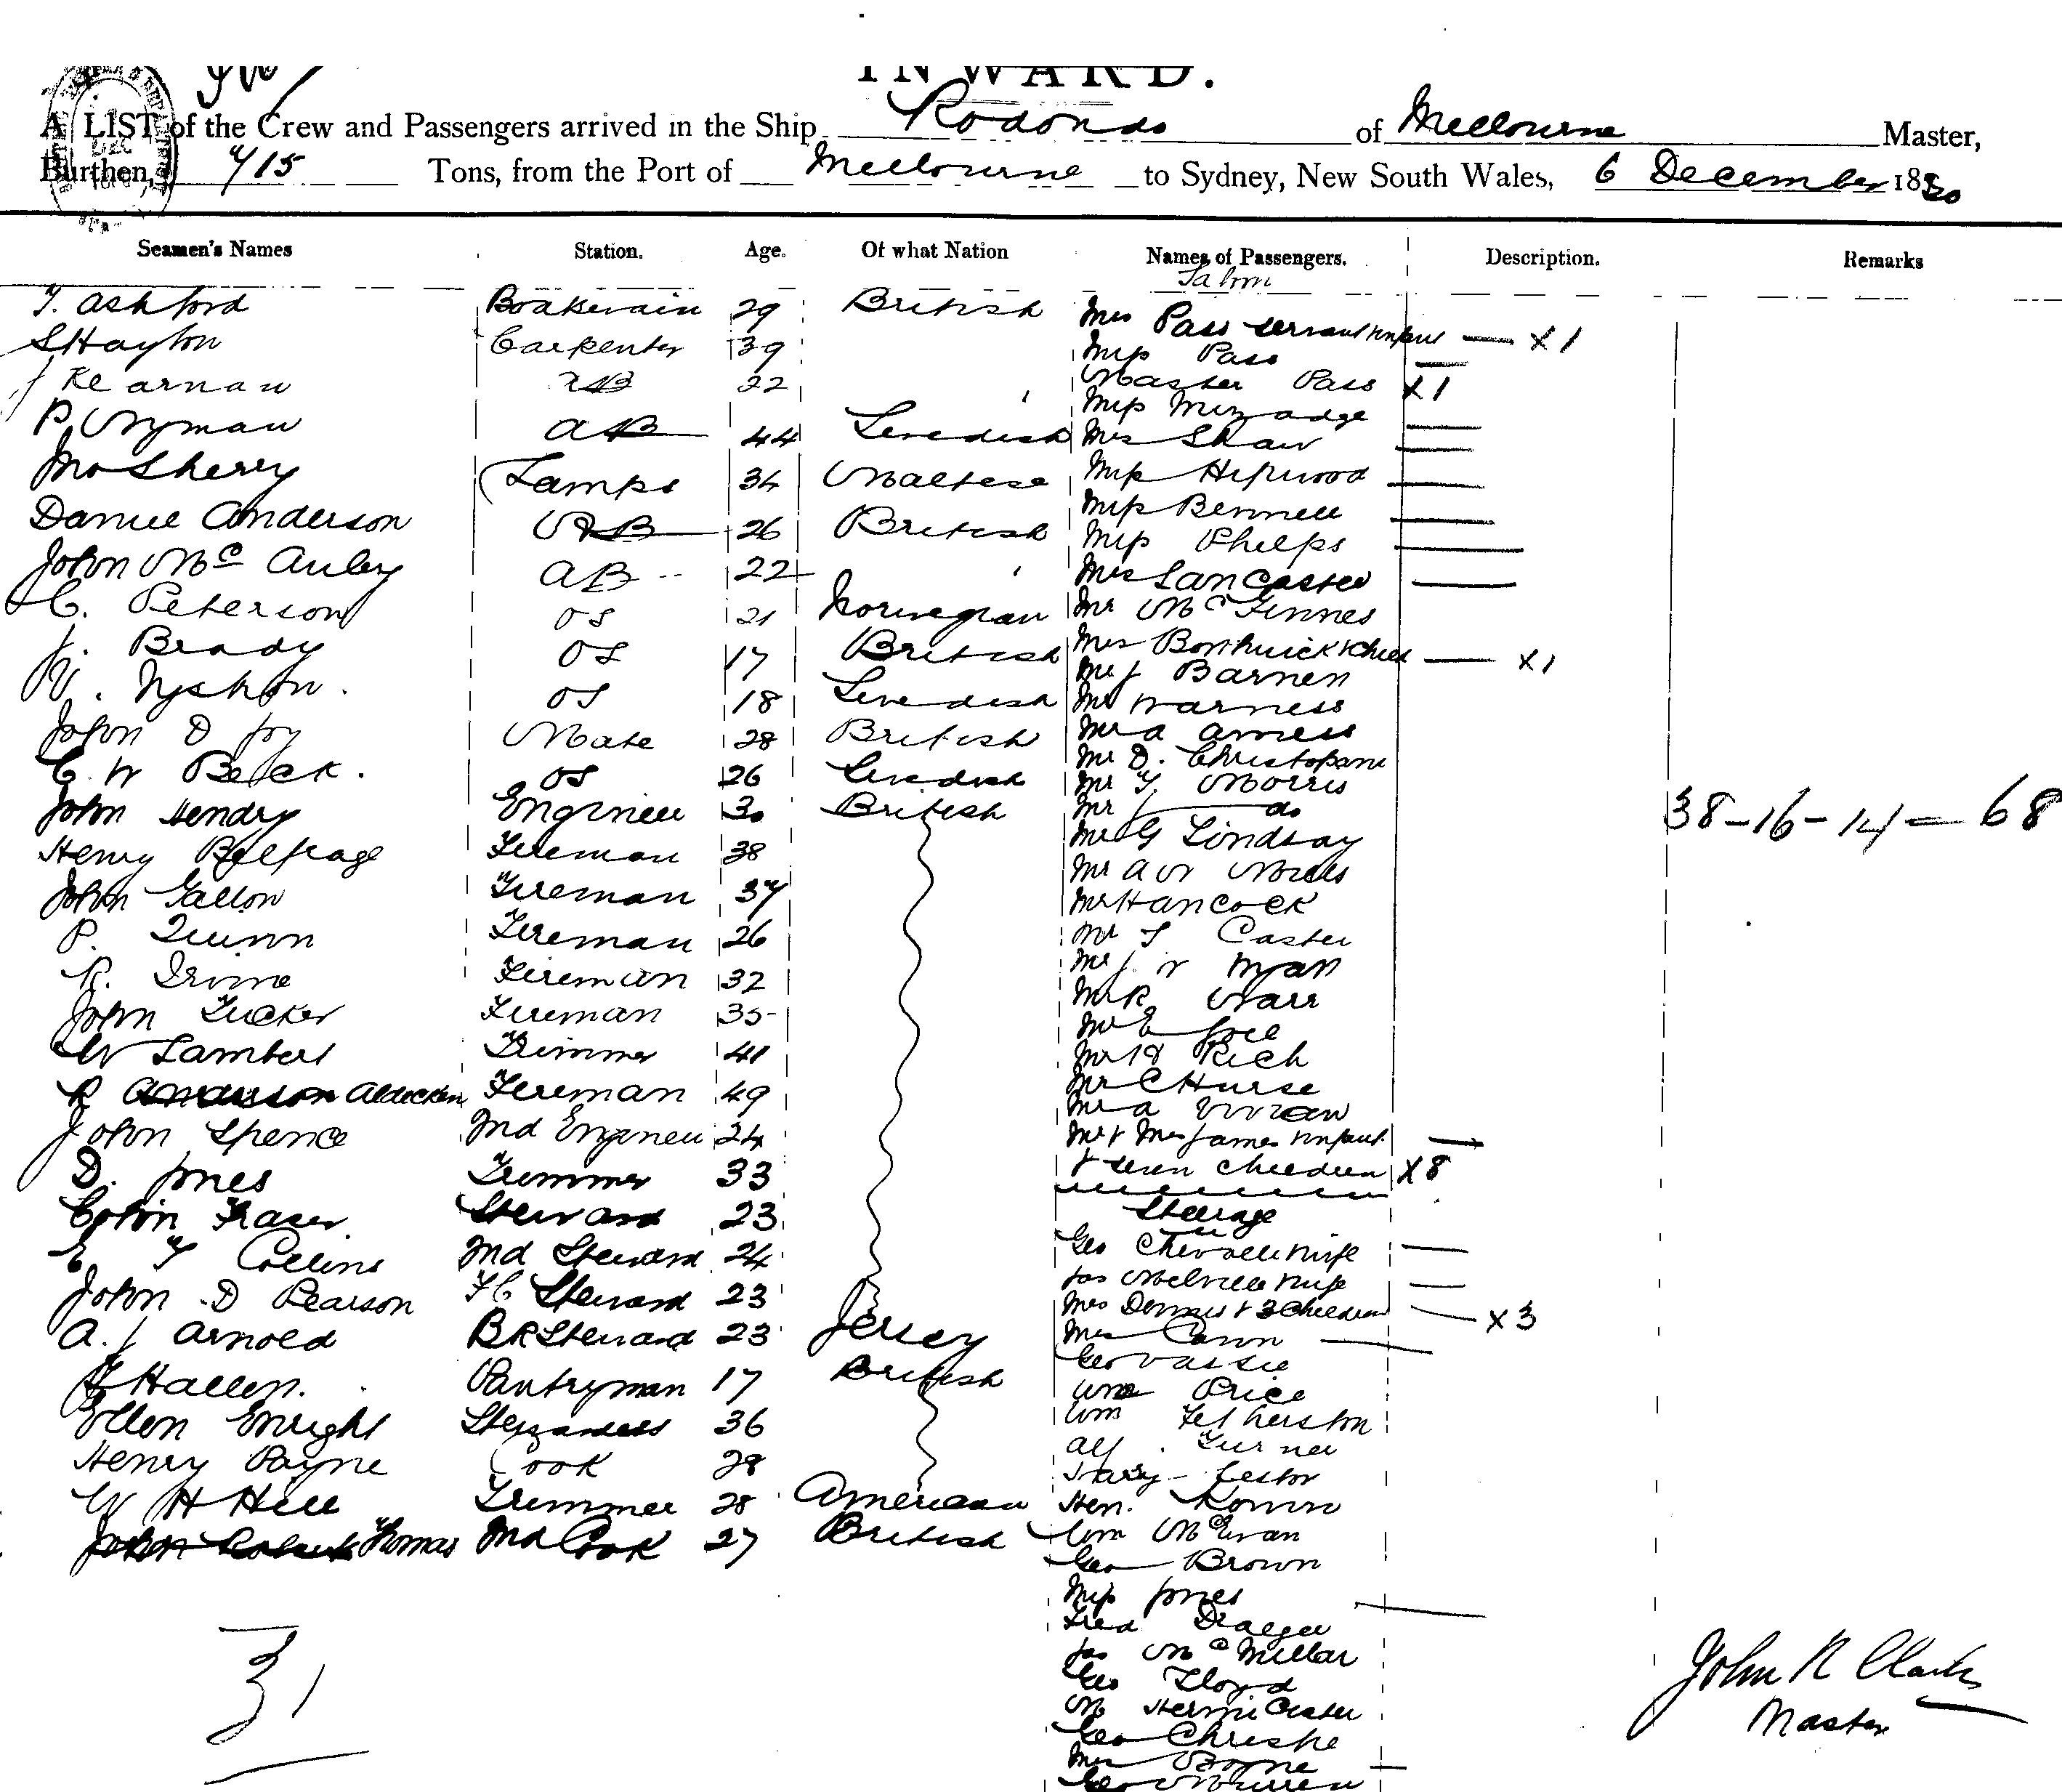 INWARD.
A LIST of the Crew and Passengers arrived in the Ship Rodondo of Melbourne Master,
Burthen, 715 Tons, from the Port of Melbourne to Sydney, New South Wales, 6 December 1880
Seamen's Names Station. Age. Of what Nation Names of Passengers. Description. Remarks
Saloon
T. Ashford Boatswain 29 British
S Hayton Carpenter 39
J Kearnan AB 22
P Wyman AB 44 Swedish
Jno Sherry Lamps 34 Maltese
Daniel Anderson AB 26 British
John McAuley AB 22
C. Peterson OS 21 Norwegian
J. Brady OS 17 British
N. Nystrom. OS 18 Swedish
John D Joy Mate 28 British
C. W Belck. OS 26 Swedish
John Hendry Engineer 30 British
Henry Belfrage Fireman 38
John Gallon Fireman 37
P. Quinn Fireman 26
R. Irvine Fireman 32
John Tucker Fireman 35
W Lambert Trimmer 41
R Anderson Fireman 49
John Spence 2nd Engineer 24
D. Jones Trimmer 33
Colin Fraser Steward 23
E T Collins 2nd Steward 24
John D Pearson FC Steward 23
A. J Arnold BR Steward 23 Jersey
Hallen. Pantryman 17 British
Ellen Enright Stewardess 36
Henry Payne Cook 28
W H Hill Trimmer 28 American
John Roberts Thomas 2nd Cook 27 British
31
Mrs Pass servant & infant X1
Miss Pass
Master Pass X1
Miss
Mrs Shaw
Miss Hipwood
Miss Bennell
Miss Phelps
Mrs Lancaster
Mr McGinnes
Mrs Borthwick & child X1
Mr J Barnen
Mr Warness
Mr A Amess
Mr D.
Mr T. Morris
Mr J do
Mr G Lindsay
Mr A W
Mr Hancock
Mr S Caster
Mr J W Myall
Mr R Warr
Mr E Joel
Mr H Rich
Mr C Hurse
Mr A Vivian
Mr & Mrs James & infant
& seven children X8
Steerage
Geo & wife
Jas Melville & wife
Mrs Dennis & 3 children X3
Mrs Cann
Geo Vassie
Wm Price
Wm Fetherston
Alf. Turner
Harry Lestor
Hen.
Wm McEwan
Geo Brown
Miss Jones
Fred Draeger
Jas McMillar
Geo Lloyd
M
Geo Christie
Mrs Boyne
Geo
38-16-14=68
John R Clark
Master